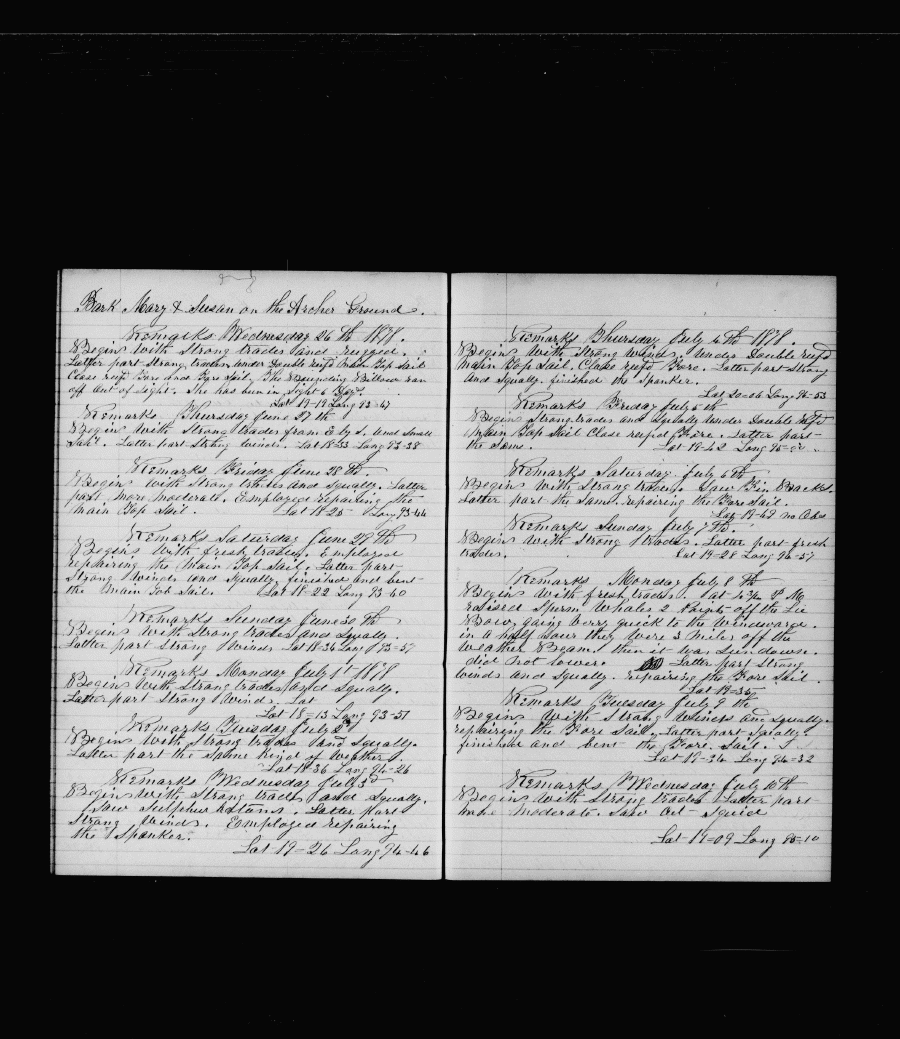 Bark Mary & Susan on the Archer Ground.
Remarks Wednesday 26th 1878.
Begins with Strong trades and rugged.
Latter part Strong trades, under Double reef'd Main Top Sail
Close reef Fore and Fore Sail. The Bounding Billow ran
off out of Sight. She has bun in Sight 6 Days.
Lat 19-19 Long 93-47
Remarks Thursday June 27th
Begins with Strong trades from E by S. and Small
Sail. Latter part Strong winds. Lat 18-33 Long 93-38
Remarks Friday June 28th.
Begins with Strong trades and Squally. Latter
part more moderate. Employed repairing the
Main Top Sail. Lat 18-25 Long 93-44
Remarks Saturday June 29th
Begins with fresh trades. Employed
repairing the Main Top Sail. Latter part
Strong Winds and Squally, finished and bent
the Main Top Sail. Lat 18-22 Long 93-40
Remarks Sunday June 30th
Begins with Strong trades and Squally.
Latter part Strong Winds Lat 18-36 Long 93-57
Remarks Monday July 1st 1878
Begins with Strong trades and Squally.
Latter part Strong Winds. Lat
Lat 18-13 Long 93-51
Remarks Tuesday July 2d
Begins with Strong trades and Squally.
Latter part the Same kind of weather.
Lat 18-36 Long 94-26
Remarks Wednesday July 3d
Begins with Strong trades and Squally.
Saw Sulphur bottoms. Latter part
Strong Winds. Employed repairing
the Spanker.
Lat 19-26 Long 94-46
Remarks Thursday July 4th 1878.
Begins with Strong winds. Under Double reef'd
Main Top Sail. Close reef'd Fore. Latter part Strong
and Squally. finished the Spanker.
Lat 20-06 Long 95-53
Remarks Friday July 5th
Begins Strong trades and Squally under Double reef'd
Main Top Sail Close reefed Fore. Latter part
the Same. Lat 19-42 Long 95-
Remarks Saturday July 6th
Begins with Strong trades. Saw Fin Backs.
Latter part the Same. repairing the Fore Sail.
Lat 19-42 no Obs
Remarks Sunday July 7th.
Begins with Strong trades. Latter part fresh
trades. Lat 19-28 Long 96-57
Remarks Monday July 8th
Begins with fresh trades. at P. M.
raised Sperm Whales 2 Points off the Lee
Bow, going very quick to the windward.
in a half hour they were 3 miles off the
weather Beam. then it was Sundown.
did not lower. Latter part Strong
winds and Squally. repairing the Fore Sail
Lat 19-35
Remarks Tuesday July 9th
Begins with Strong Winds and Squally.
repairing the Fore Sail. Latter part Squally.
finished and bent the Fore Sail.
Lat 19-34 Long 94-32
Remarks Wednesday July 10th
Begins with Strong trades Latter part
more moderate. Saw Squid
Lat 19-09 Long 95-10